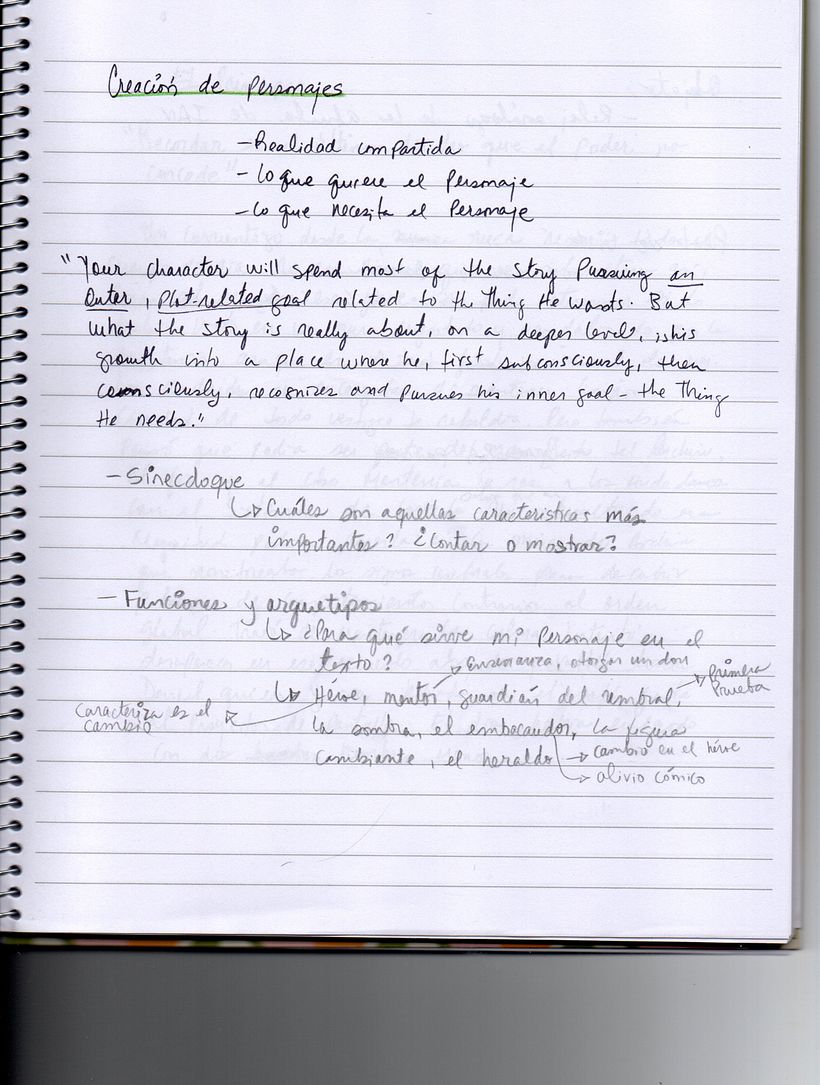 Creación de Personajes
- Realidad compartida
- Lo que quiere el Personaje
- Lo que necesita el Personaje
"Your character will spend most of the story Pursuing an
outer, plot-related goal related to the Thing He Wants. But
what the story is really about, on a deeper level, is his
growth into a place where he, first subconsciously, then
consciously, recognizes and pursues his inner goal - the Thing
He needs."
- Sinecdoque
↳ Cuáles son aquellas características más
importantes? ¿Contar o mostrar?
- Funciones y arquetipos
↳ ¿Para qué sirve mi Personaje en el
texto?
→ Enseñanza, otorgar un don
→ primera
Prueba
↳ Héroe, mentor, guardián del umbral,
Caracteriza es el
cambio
la sombra, el embaucador, la figura
cambiante, el heraldo
→ cambio en el héroe
→ alivio cómico